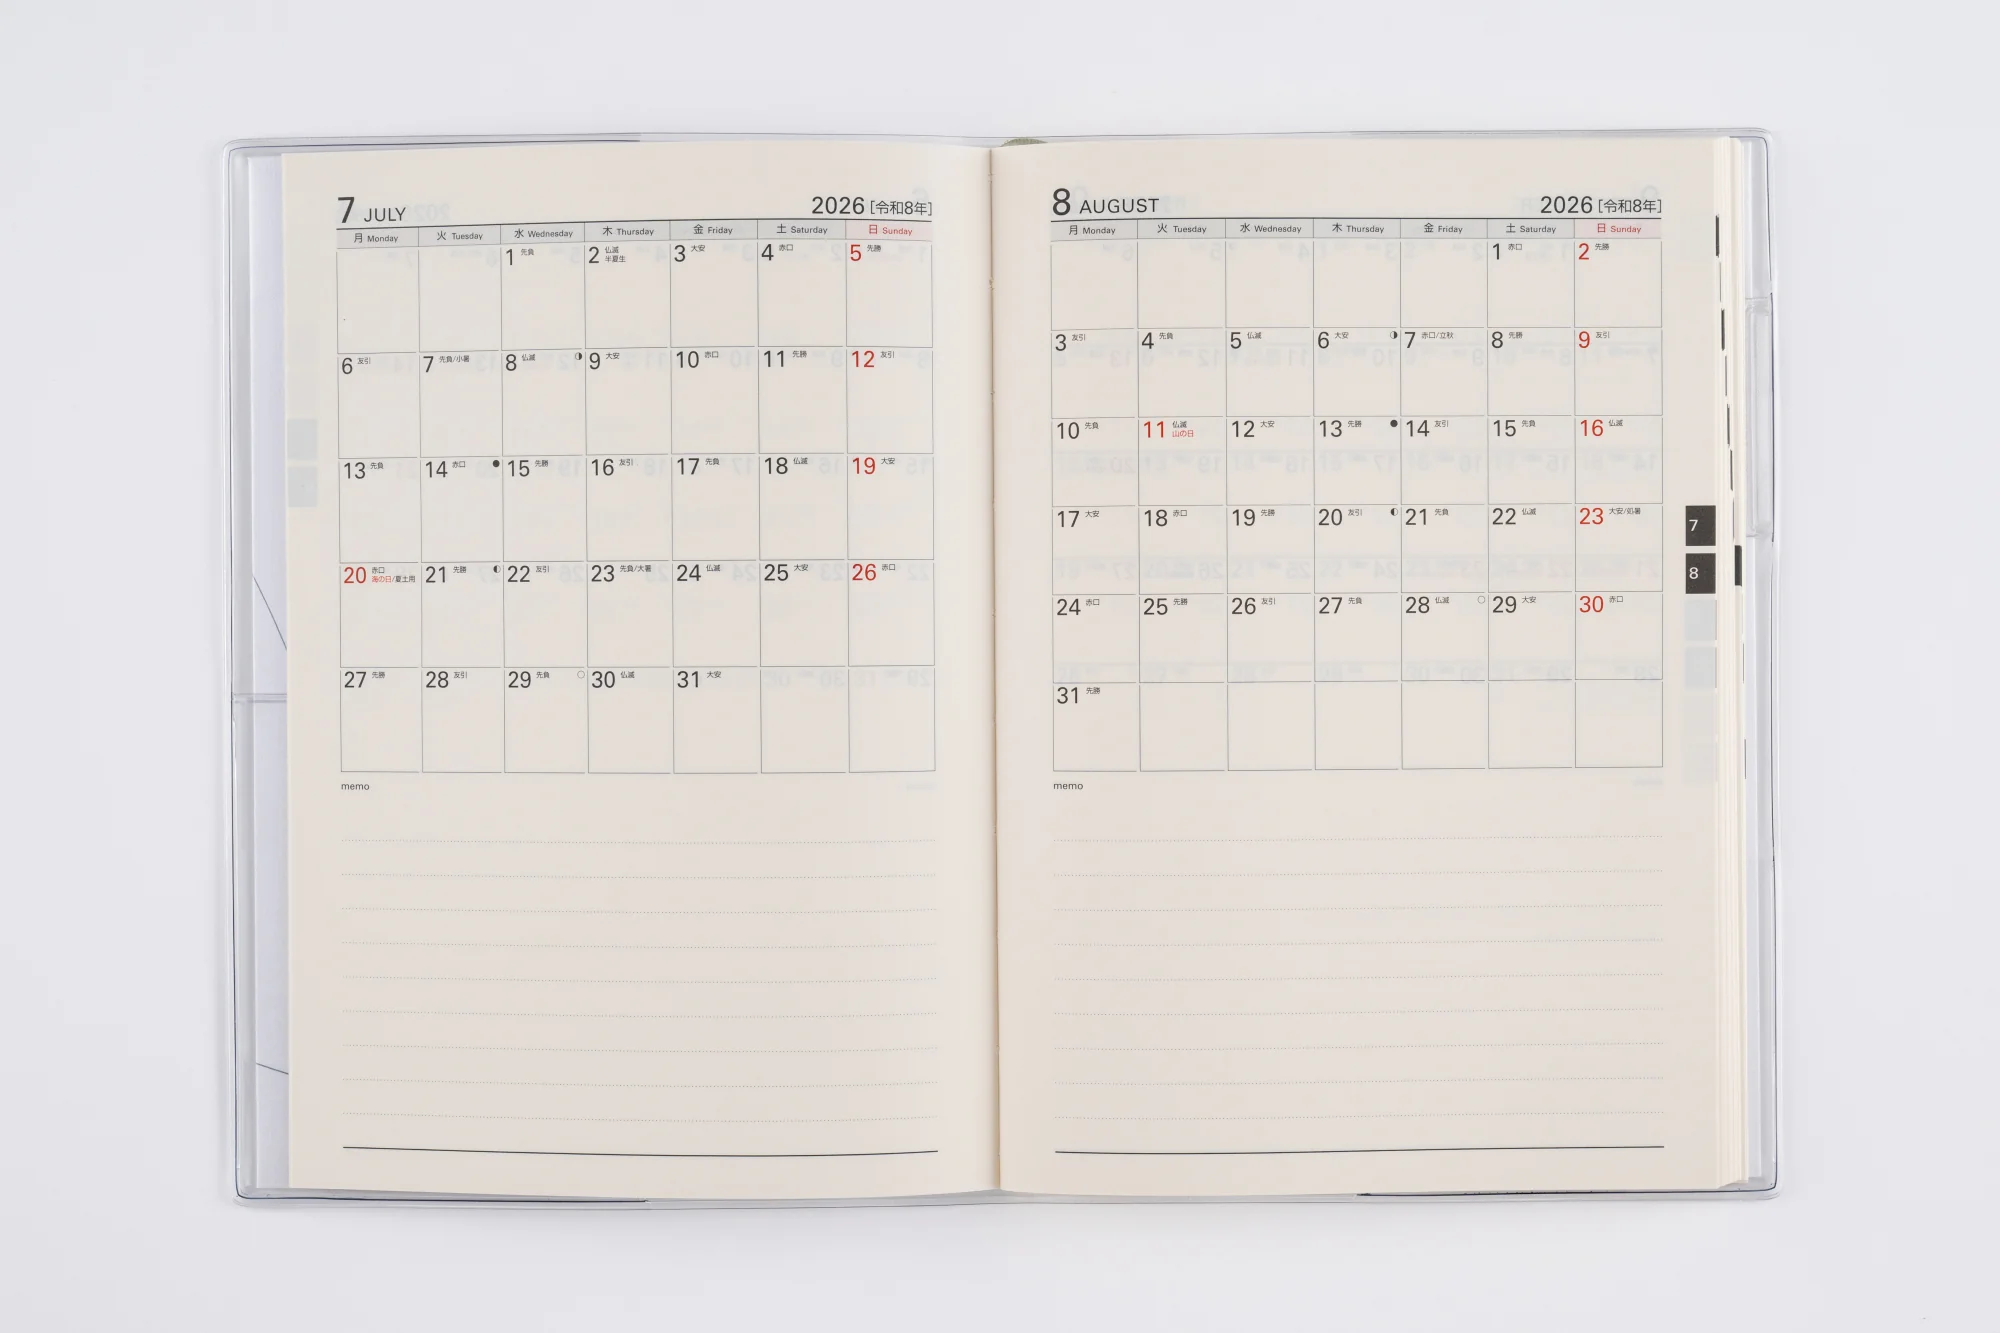 7 JULY 2026 [令和8年]
月 Monday 火 Tuesday 水 Wednesday 木 Thursday 金 Friday 土 Saturday 日 Sunday
1 先負 2 仏滅 半夏生 3 大安 4 赤口 5 先勝
6 友引 7 先負/小暑 8 仏滅 9 大安 10 赤口 11 先勝 12 友引
13 先負 14 赤口 15 先勝 16 友引 17 先負 18 仏滅 19 大安
20 赤口 海の日/夏土用 21 先勝 22 友引 23 先負/大暑 24 仏滅 25 大安 26 赤口
27 先勝 28 友引 29 先負 30 仏滅 31 大安
memo
8 AUGUST 2026 [令和8年]
月 Monday 火 Tuesday 水 Wednesday 木 Thursday 金 Friday 土 Saturday 日 Sunday
1 赤口 2 先勝
3 友引 4 先負 5 仏滅 6 大安 7 赤口/立秋 8 先勝 9 友引
10 先負 11 仏滅 山の日 12 大安 13 先勝 14 友引 15 先負 16 仏滅
17 大安 18 赤口 19 先勝 20 友引 21 先負 22 仏滅 23 大安/処暑
24 赤口 25 先勝 26 友引 27 先負 28 仏滅 29 大安 30 赤口
31 先勝
memo
7
8